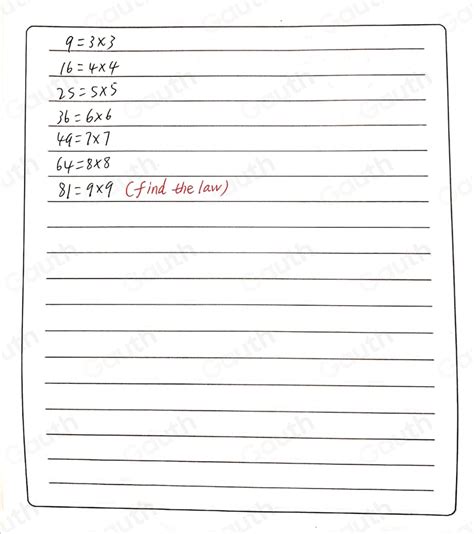 9=3×3
16=4×4
25=5×5
36=6×6
49=7×7
64=8×8
81=9×9 (find the law)